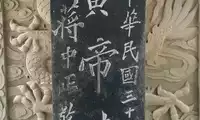 中華民國三十
黃帝
蔣中正敬